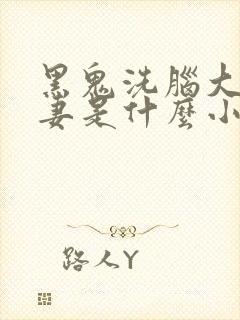 黑鬼洗腦大
妻是什麼小
路人Y